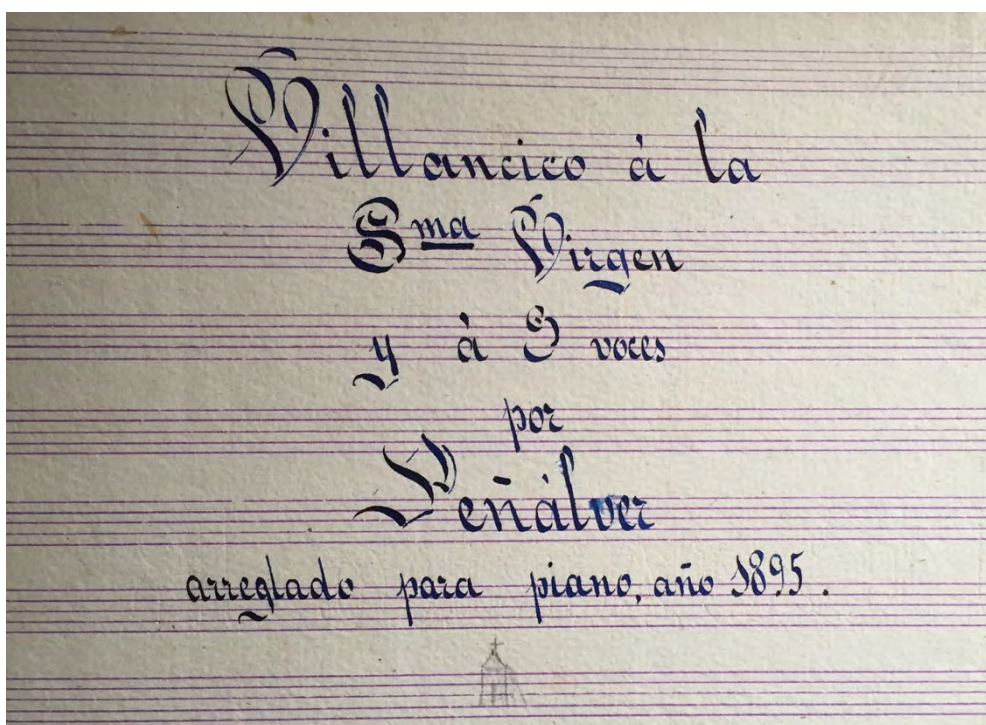 Villancico à la
Sma Virgen
y à voces
por
Peñálver
arreglado para piano, año 1895.